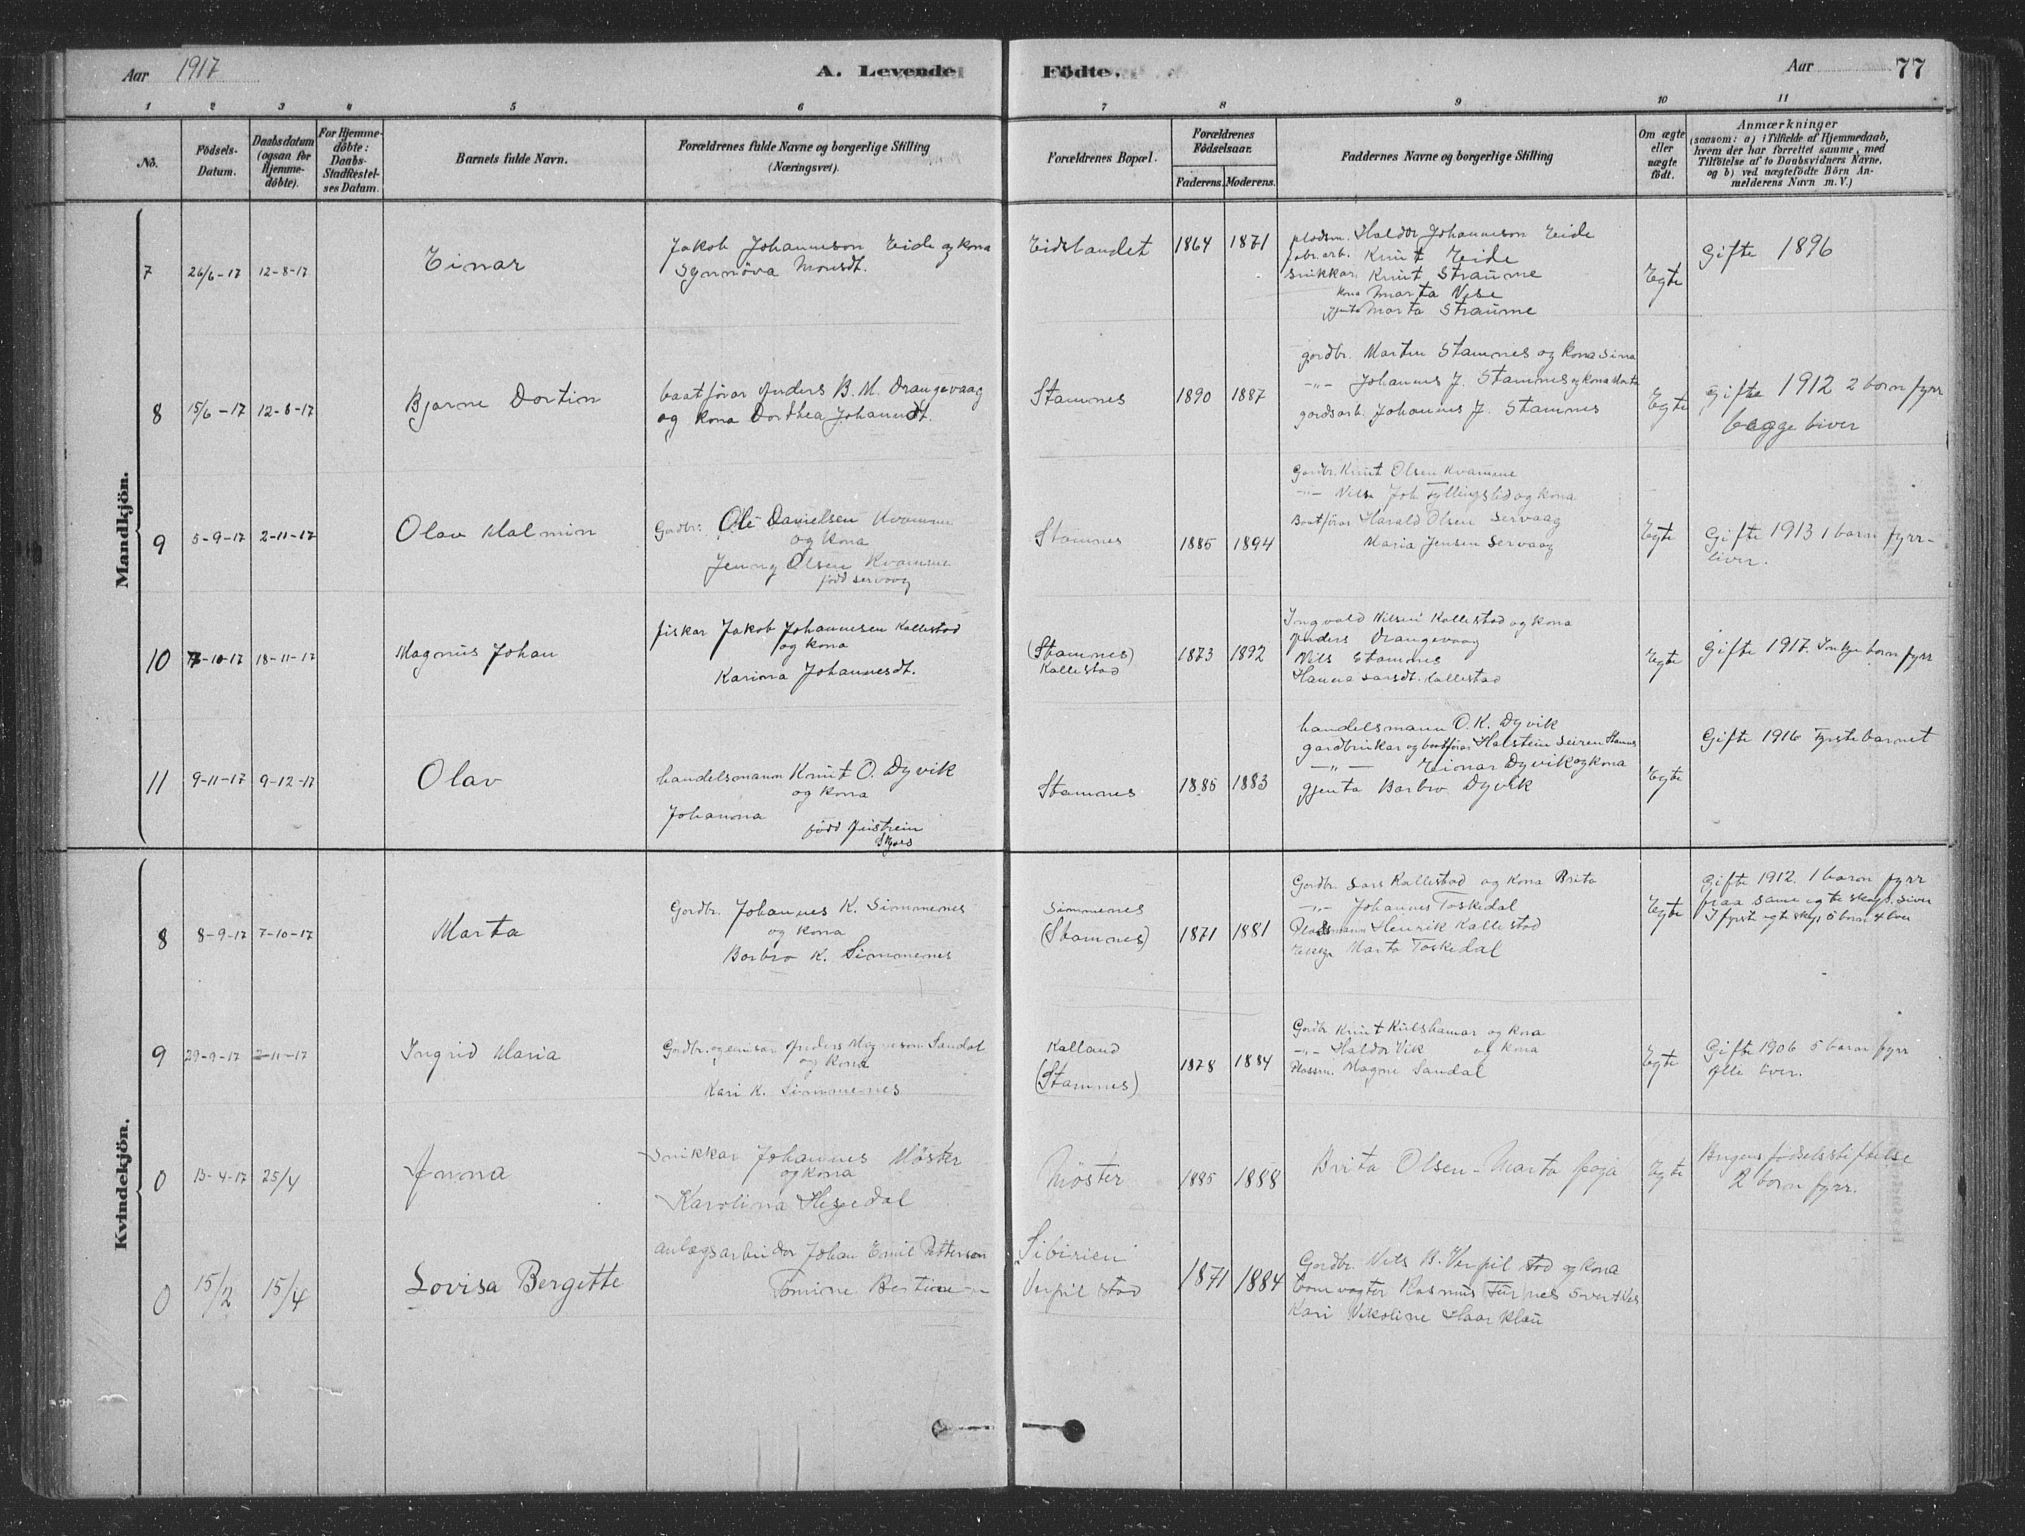 Aar 1917
A. Levende Födte.
Aar 77
1 2 3 4 5 6 7 8 9 10 11
No.
Födsels-
Datum.
Daabsdatum
(ogsaa for
Hjemme-
döbte).
For Hjemme-
döbte:
Daabs-
Stadfæstel-
ses Datum.
Barnets fulde Navn.
Forældrenes fulde Navne og borgerlige Stilling
(Næringsvei).
Forældrenes Bopæl.
Forældrenes
Födselsaar.
Faderens. Moderens.
Faddernes Navne og borgerlige Stilling
Om ægte
eller
uægte
födt.
Anmærkninger
(saasom: a) i Tilfælde af Hjemmedaab,
hvem der har forrettet samme, med
Tilföielse af to Daabsvidners Navne,
og b) ved uægtefödte Börn An-
melderens Navn m. V.)
Mandkjön.
7 26/6-17 12-8-17
Einar
Jakob Johanneson Eide og kona
Synnöva Monsdt.
Eidslandet
1864 1871
pladsm. Haldor Johanneson Eide
fabr.arb. Knut Eide
snikkar Knut Straume
kona Marta Vese
gjenta Marta Straume
Egte
Gifte 1896
8 15/6-17 12-8-17
Bjarne Dortin
baatförar Anders B. M. Drangevaag
og kona Dorthea Johannsdt.
Stamnes
1890 1887
gardbr. Martin Stamnes og kona Sina
-"- Johannes J. Stamnes og kona Marta
gardsarb. Johannes J. Stamnes
Egte
gifte 1912 2 born fyrr
begge liver
9 5-9-17 2-11-17
Olav Malmin
Gardbr. Ole Danielsen Kvamme
og kona
Jenny Olsen Kvamme
född Servaag
Stamnes
1885 1894
Gardbr. Knut Olsen Kvamme
-"- Nils Joh Fyllingslid og kona
Baatförar Harald Olsen Servaag
Maria Jensen Servaag
Egte
Gifte 1913 1 barn fyrr-
liver.
10 7-10-17 18-11-17
Magnus Johan
fiskar Jakob Johannesen Kallestad
og kona
Karina Johannesdt.
(Stamnes)
Kallestad
1873 1892
Ingvald Nilsen Kallestad og kona
Anders Drangevaag
Nils Stamnes
Hanna Larsdt. Kallestad
Egte
Gifte 1917. Inkje born fyrr
11 9-11-17 9-12-17
Olav
handelsmann Knut O. Dyvik
og kona
Johanna
född Austrein
Stamnes
1885 1883
handelsmann O. K. Dyvik
gardbrukar og baatförar Halstein Seiren Stamnes
-"- Einar Dyvik og kona
gjenta Barbro Dyvik
Egte
Gifte 1916 Fyrste barnet
Kvindekjön.
8 8-9-17 7-10-17
Marta
Gardbr. Johannes K. Simmenes
og kona
Barbro K. Simmenes
Simmenes
(Stamnes)
1871 1881
Gardbr. Lars Kallestad og kona Brita
-"- Johannes Toskedal
Pladsmann Henrik Kallestad
Marta Toskedal
Egte
Gifte 1912. 1 barn fyrr
fraa same egteskap. Liver
I fyrste egteskap 5 born 4 liver
9 29-9-17 2-11-17
Ingrid Maria
Gardbr. og emisær Anders Magneson Sandal
og kona
Kari K. Simmenes
Kalland
(Stamnes)
1878 1884
Gardbr Knut Kulshamar og kona
-"- Haldor Vik og kona
Plassm. Magne Sandal
Egte
Gifte 1906 5 born fyrr
Alle liver.
0 13-4-17 25/4
Anna
Snikkar Johannes Möster
og kona
Karolina Hegedal
Möster
1885 1888
Brita Olsen - Marta Aga
Egte
Bergens födselsstiftelse
2 born fyrr.
0 15/2 15/4
Lovisa Bergette
Anlægsarbeider Johan Emil Petterson
Tomine Bertine -"-
Sibirien
Verpilstad
1871 1884
Gardbr. Nils B. Verpilstad og kona
Banevagter Rasmus Furnes
Kari Nikoline Haarklau